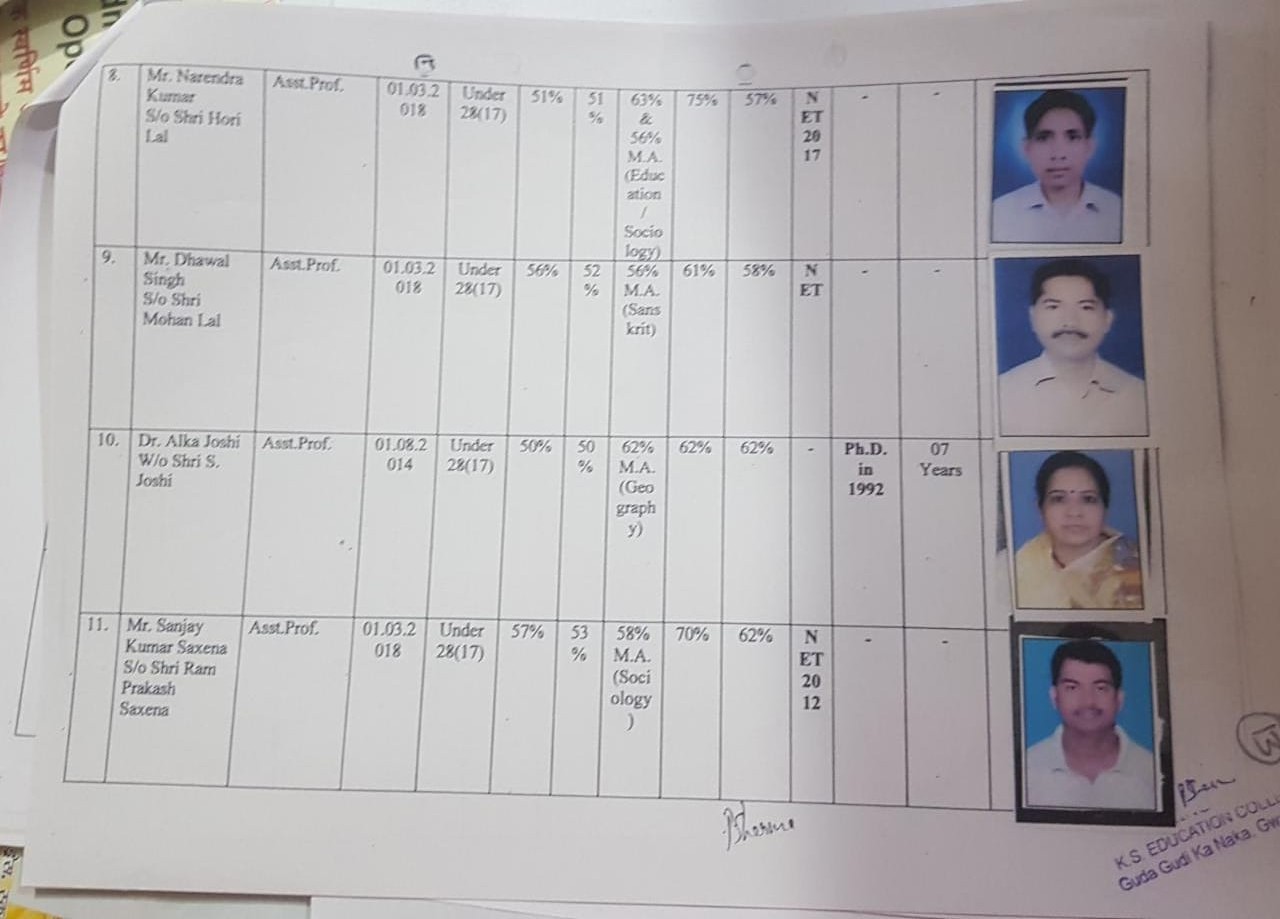 नि
8.
Mr. Narendra
Kumar
S/o Shri Hori
Lal
Asst.Prof.
01.03.2
018
Under
28(17)
51%
51
%
63%
&
56%
M.A.
(Educ
ation
/
Socio
logy)
75%
57%
N
ET
20
17
-
-
9.
Mr. Dhawal
Singh
S/o Shri
Mohan Lal
Asst.Prof.
01.03.2
018
Under
28(17)
56%
52
%
56%
M.A.
(Sans
krit)
61%
58%
N
ET
-
-
10.
Dr. Alka Joshi
W/o Shri S.
Joshi
Asst.Prof.
01.08.2
014
Under
28(17)
50%
50
%
62%
M.A.
(Geo
graph
y)
62%
62%
-
Ph.D.
in
1992
07
Years
11.
Mr. Sanjay
Kumar Saxena
S/o Shri Ram
Prakash
Saxena
Asst.Prof.
01.03.2
018
Under
28(17)
57%
53
%
58%
M.A.
(Soci
ology
)
70%
62%
N
ET
20
12
-
-
K.S. EDUCATION COLL
Guda Gudi Ka Naka. Gw